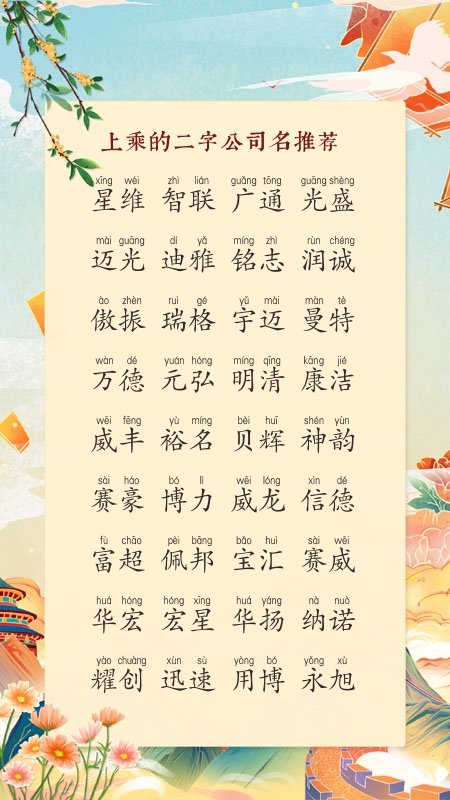 上乘的二字公司名推荐
xīng wéi zhì lián guǎng tōng guāng shèng
星维 智联 广通 光盛
mài guāng dí yǎ míng zhì rùn chéng
迈光 迪雅 铭志 润诚
ào zhèn ruì gé yǔ mài màn tè
傲振 瑞格 宇迈 曼特
wàn dé yuán hóng míng qīng kāng jié
万德 元弘 明清 康洁
wēi fēng yù míng bèi huī shén yùn
威丰 裕名 贝辉 神韵
sài háo bó lì wēi lóng xìn dé
赛豪 博力 威龙 信德
fù chāo pèi bāng bǎo huì sài wēi
富超 佩邦 宝汇 赛威
huá hóng hóng xīng huá yáng nà nuò
华宏 宏星 华扬 纳诺
yào chuàng xùn sù yòng bó yǒng xù
耀创 迅速 用博 永旭